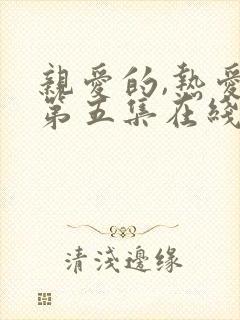 親愛的,熱愛
第五集在綫
清淺邊缘